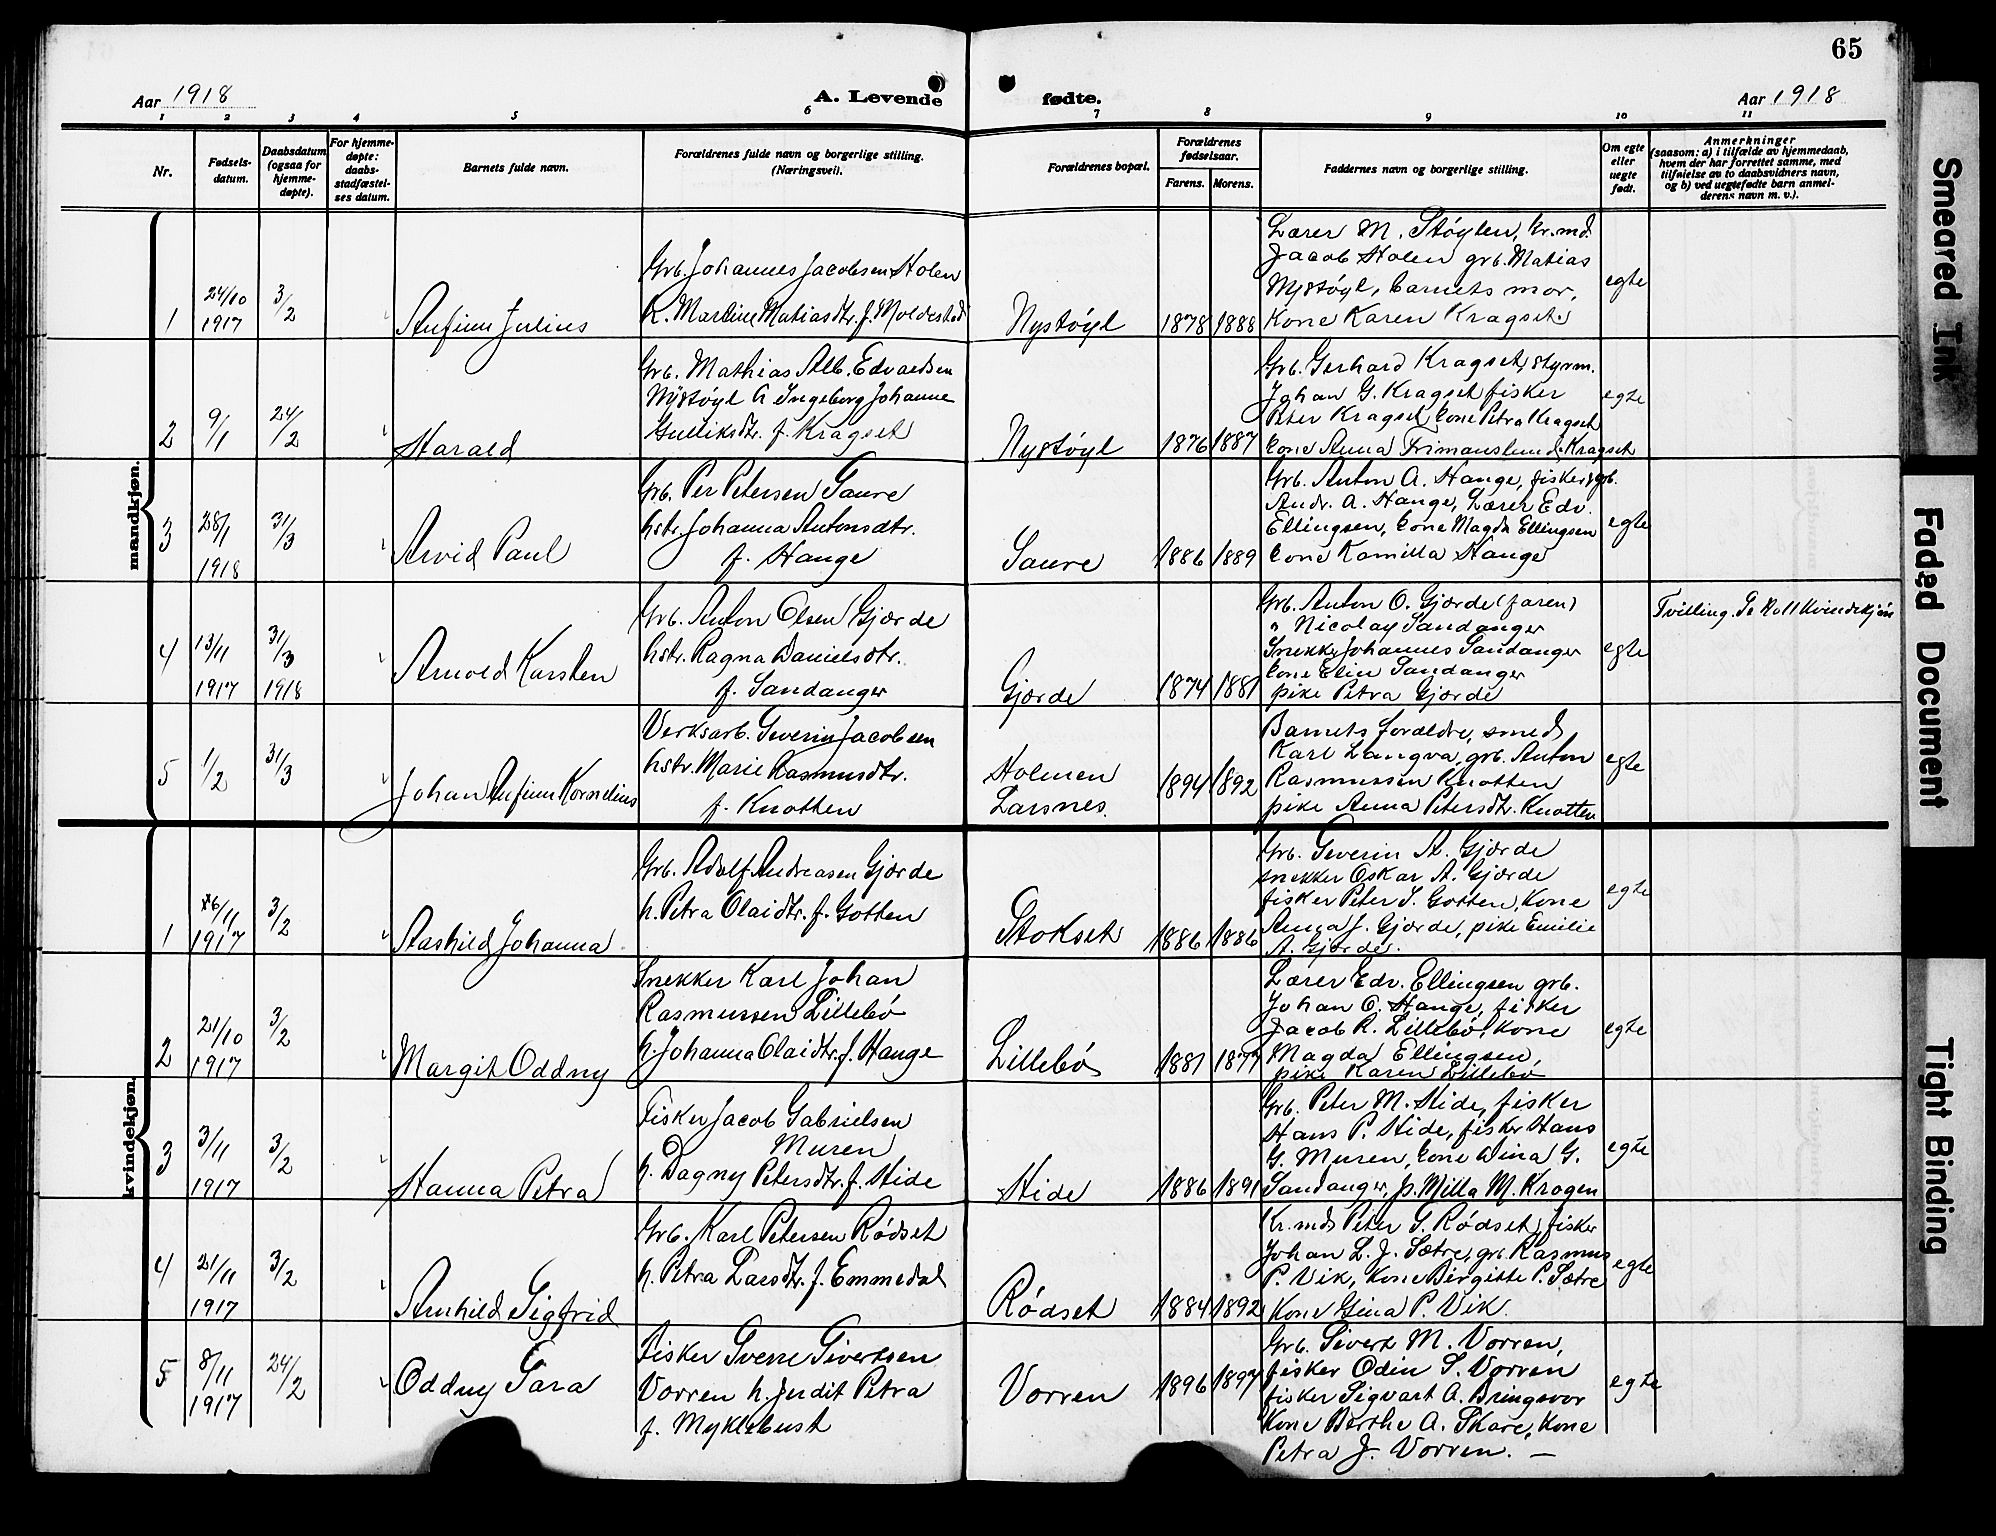 65
Aar 1918
A. Levende
fødte.
Aar 1918
1 2 3 4 5 6 7 8 9 10 11
Nr.
Fødsels-
datum.
Daabsdatum
(ogsaa for
hjemme-
døpte).
For hjemme-
døpte:
daabs-
stadfæstel-
ses datum.
Barnets fulde navn.
Forældrenes fulde navn og borgerlige stilling.
(Næringsvei).
Forældrenes bopæl.
Forældrenes
fødselsaar.
Farens. Morens.
Faddernes navn og borgerlige stilling.
Om egte
eller
uegte
født.
Anmerkninger
(saasom: a) i tilfælde av hjemmedaab,
hvem der har forrettet samme, med
tilføielse av to daabsvidners navn,
og b) ved uegtefødte barn anmel-
derens navn m. v.).
mandkjøn.
1
24/10
1917
3/2
Anfinn Julius
Grb. Johannes Jacobsen Holen
K. Martine Matiasdtr. f. Moldestad
Nystøyl
1878 1888
Lærer M. Støylen, kr.md.
Jacob Holen grb. Matias
Nystøyl, barnets mor,
Kone Karen Kragset.
egte
2
9/1
24/2
Harald
Grb. Mathias Alb. Edvardsen
Nystøyl h Ingeborg Johanne
Gulliksdtr. f. Kragset
Nystøyl
1876 1887
Grb. Gerhard Kragset, styrm.
Johan G. Kragset fisker
Peter Kragset, kone Petra Kragset
kone Anna Frimanslund Kragset
egte
3
28/1
1918
31/3
Arvid Paul
Grb. Per Petersen Saure
hstr. Johanna Antonsdtr.
f. Hauge
Saure
1886 1889
Grb. Anton A. Hauge, fisker grb.
Andr. A. Hauge, Lærer Edv.
Ellingsen, kone Magda Ellingsen
kone Kamilla Hauge
egte
4
13/11
1917
31/3
1918
Arnold Karsten
Grb. Anton Olsen Gjærde
hstr. Ragna Danielsdtr.
f. Sandanger
Gjærde
1874 1881
Grb. Anton O. Gjærde (faren)
" Nicolay Sandanger
Snekk. Johannes Sandanger
kone Elin Sandanger
pike Petra Gjærde
egte
Tvilling. Se No 11 Kvindekjøn
5
1/2
31/3
Johan Anfinn Kornelius
Verksarb. Severin Jacobsen
hstr. Marie Rasmusdtr.
f. Knotten
Holmen
Larsnes.
1894 1892
Barnets forældre, smed
Karl Langva, grb. Anton
Rasmussen Knotten
pike Anna Petersdtr. Knotten
egte
kvindekjøn.
1
26/11
1917
3/2
Aashild Johanna
Grb. Adolf Andreasen Gjærde
h. Petra Olaidtr. f. Gotten
Stokset
1886 1886
Grb. Severin A. Gjærde
snekker Oskar A. Gjærde
fisker Peter S. Gotten, Kone
Anna J. Gjærde, pike Emilie
A. Gjærde.
egte
2
21/10
1917
3/2
Margit Oddny
Snekker Karl Johan
Rasmussen Lillebø
h. Johanna Olaidtr. f. Hauge
Lillebø
1881 1877
Lærer Edv. Ellingsen grb.
Johan O. Hauge, fisker
Jacob R. Lillebø, kone
Magda Ellingsen,
pike Karen Lillebø
egte
3
3/11
1917
3/2
Hanna Petra
Fisker Jacob Gabrielsen
Muren
h. Dagny Petersdtr. f. Hide
Hide
1886 1891
Grb. Peter M. Hide, fisker
Hans P. Hide, fisker Hans
G. Muren, kone Dina G.
Sandanger, p. Milla M. Krogen
egte
4
21/11
1917
3/2
Arnhild Sigfrid
Grb. Karl Petersen Rødset
h. Petra Larsdtr. f. Emmedal
Rødset
1884 1892
Kr.md. Peter S. Rødset, fisker
Johan L. J. Sætre, grb. Rasmus
P. Vik, Kone Birgitte P. Sætre
Kone Gina P. Vik.
egte
5
8/11
1917
24/2
Oddny Sara
Fisker Sverre Sivertsen
Vorren h. Judit Petra
f. Myklebust
Vorren
1896 1897
Grb. Sivert M. Vorren,
fisker Odin S. Vorren
fisker Sigvart A. Bringsvor
Kone Berthe A. Skare, kone
Petra J. Vorren. —
egte
Smeared Ink
Faded Document
Tight Binding